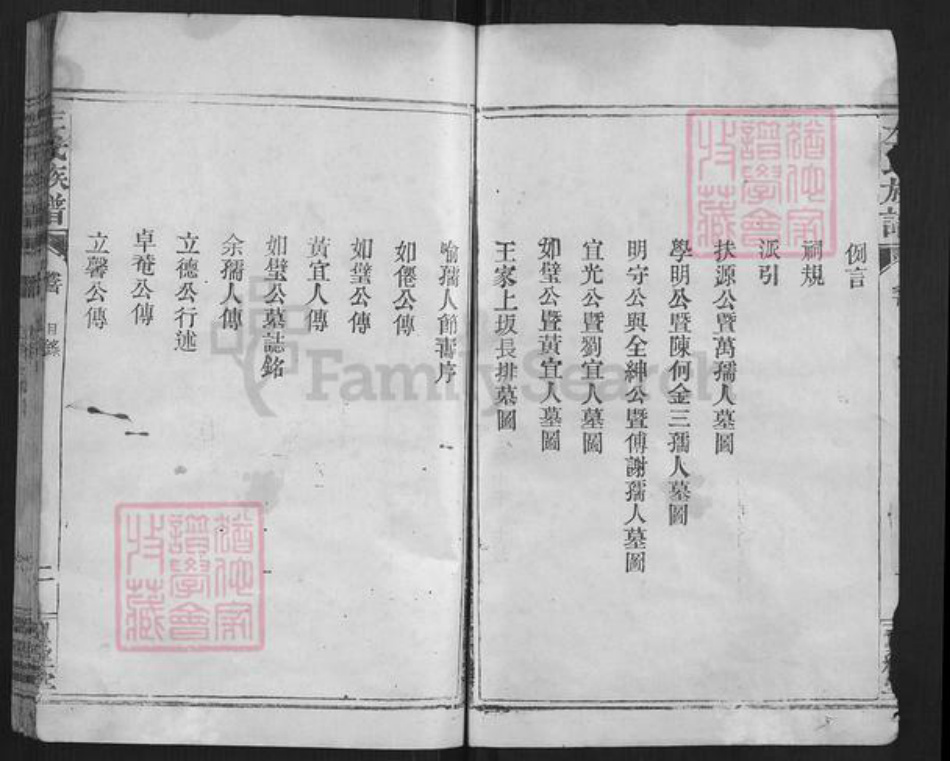 例言
祠規
派引
扶源公暨萬孺人墓圖
學明公暨陳何金三孺人墓圖
明守公與全紳公暨傅謝孺人墓圖
宜光公暨劉宜人墓圖
如璧公暨黃宜人墓圖
王家上坂長排墓圖
喻孺人節壽序
如僊公傳
如璧公傳
黃宜人傳
如璧公墓誌銘
余孺人傳
立德公行述
卓菴公傳
立馨公傳
氏族譜
目錄
二
氏族譜
猶他家譜學會收藏
猶他家譜學會收藏
FamilySearch